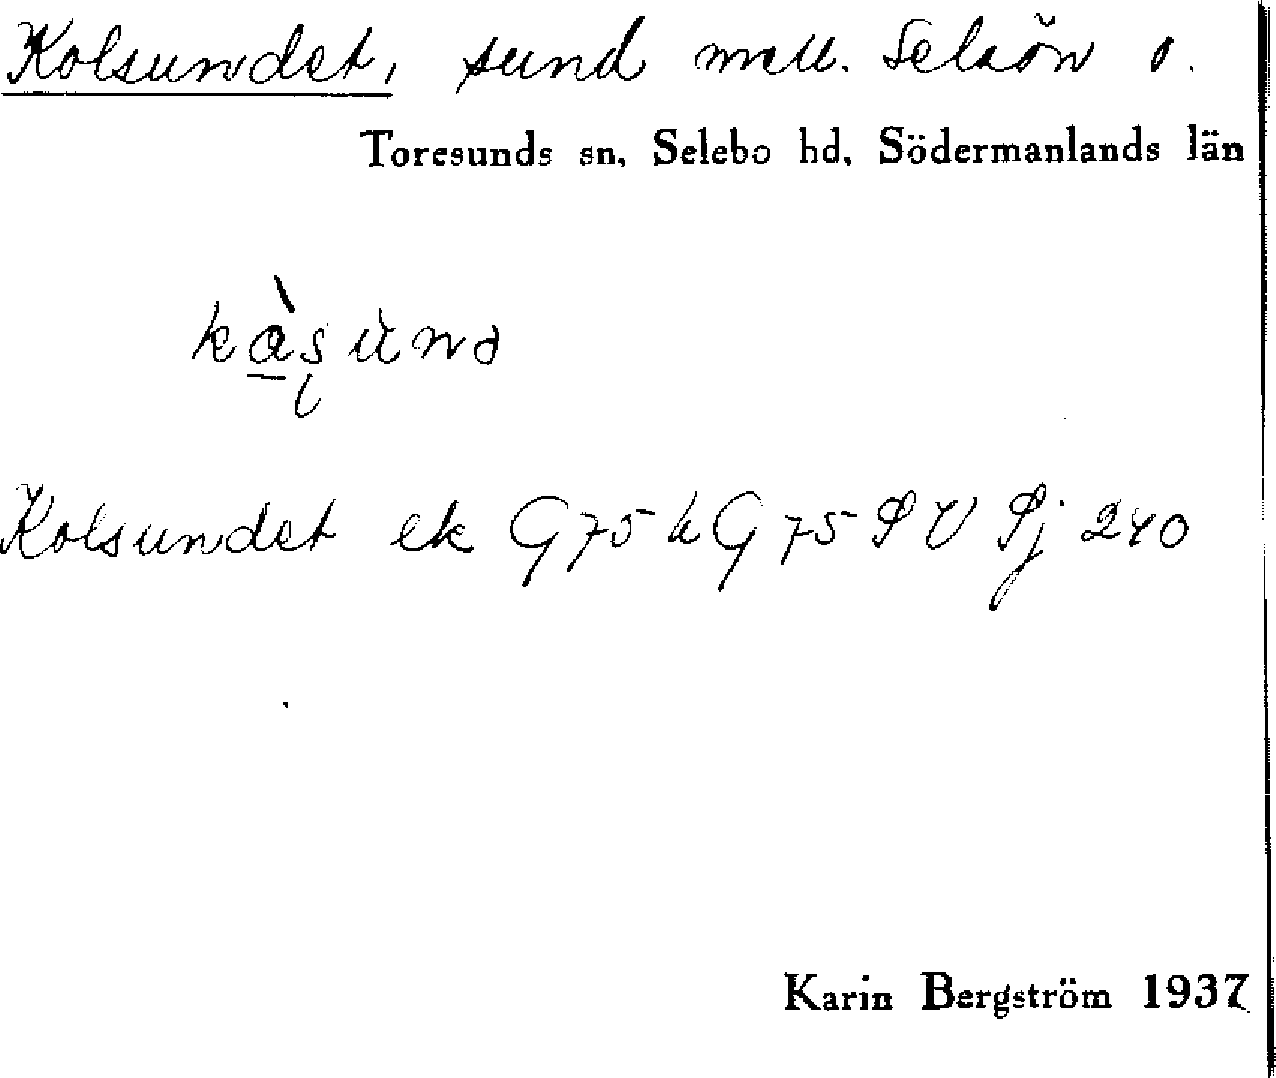 Kolsundet, sund mell. Selaön o.
Toresunds sn, Selebo hd, Södermanlands län
kàsùnd
Kolsundet ek G75 kG75 SV Sj 240
Karin Bergström 1937